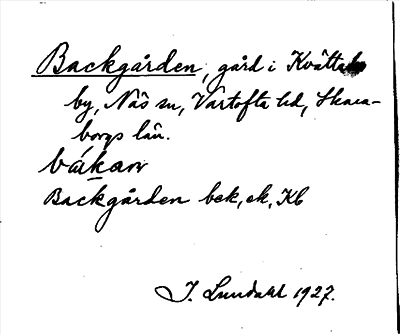 Backgården, gård i Kvätta
by, Näs sn, Vartofta hd, Skara-
borgs län.
bákan
Backgården bek, ek, Kb
J. Lundahl 1927.